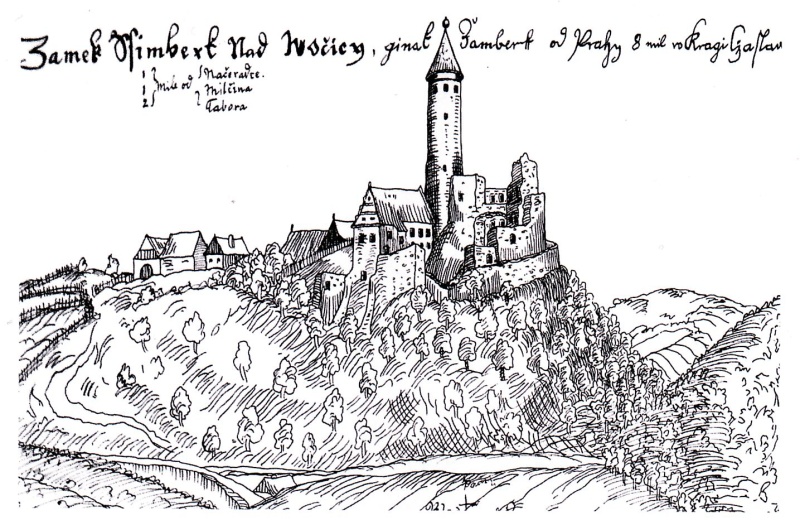 Zamek Ssimberk Nad Wočicy, ginak Žamberk od Prahy 8 mil w Kragi Czaslaw
1 Mile od Načeradce.
1 Milčina
2 Tabora